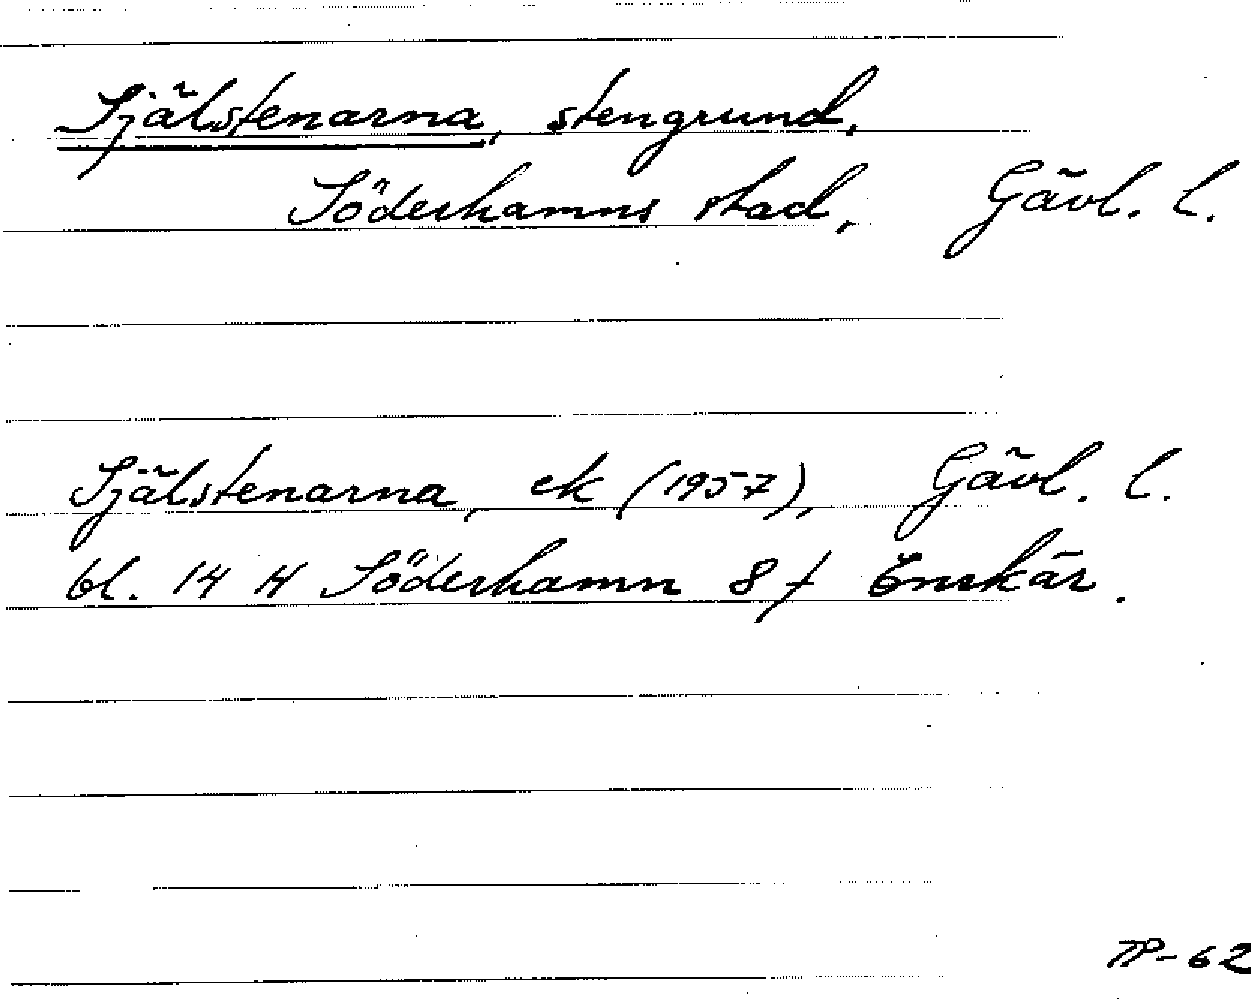 Själstenarna, stengrund,
Söderhamns stad, Gävl. l.
Själstenarna, ek (1957), Gävl. l.
bl. 14 H Söderhamn 8 f Enskär.
TP-62